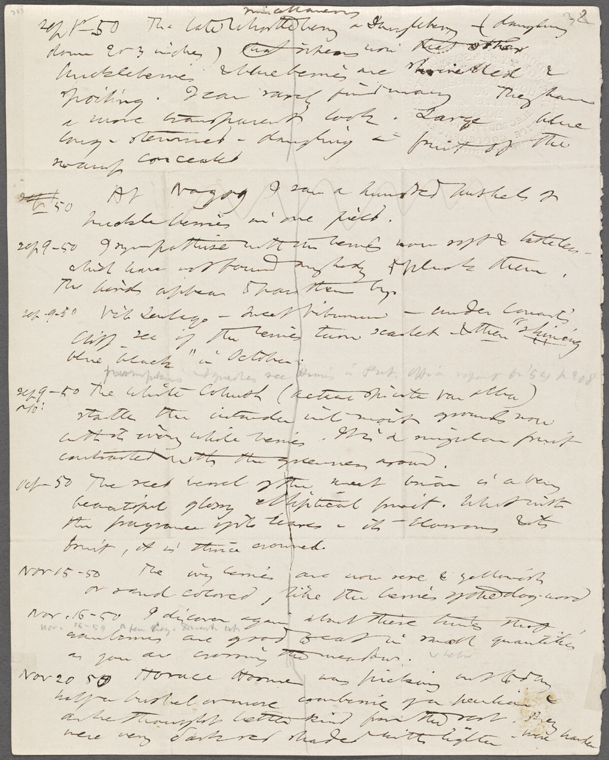 miscellaneous
Sep 1st-50 The late whortleberry a Dangleberry - (dangling
down 2 or 3 inches) now other
huckleberries & blueberries are shrivelled &
spoiling. I can rarely find many They have
a more transparent look. Large blue
long-stemmed-dangling- fruit of the
swamp concealed
50 At Nagog I saw a hundred bushels of
huckleberries in one field.
Sep 9-50 I sympathise with the berries now soft & tasteless-
which have not found anybody to pluck them.
The birds appear to pass them by.
Sep-9-50 Vib Lentago - sweet viburnum - under Conant's
Cliff see of the berries turn scarlet & then "shining
blue black" in October.
Pumpkins and squashes see
Sep 9-50 The White Cohush (actaea spicata var alba)
startles the intruder in moist grounds now
with its ivory white berries. It is a singular fruit
contrasted with the greenness around.
50 The seed vessel of the sweet briar is a very
beautiful glossy elliptical fruit. What with
the fragrance of its leaves - its blossoms & its
fruit, it is thrice crowned.
Nov 15-50 The ivy berries are now sere & yellowish
or sand colored, like the berries of the dogwood
Nov. 16-50 I discover again about these times that
Nov. 16-50
cranberries are good to eat in small quantities
as you are crossing the meadows.
Nov 20 50 Horace Hosmer was picking out today
half a bushel or more cranberries of a peculiar &
as he thought better kind from the rest. They
were very dark red shaded with lighter - were harder